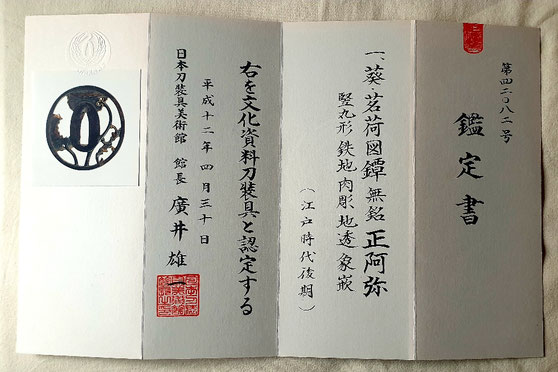 第四二〇八二号
鑑定書
一、葵・茗荷図鐔 無銘 正阿弥
竪丸形 鉄地 肉彫 地透 象嵌
（江戸時代後期）
右を文化資料刀装具と認定する
平成十二年四月三十日
日本刀装具美術館 館長 廣井雄一